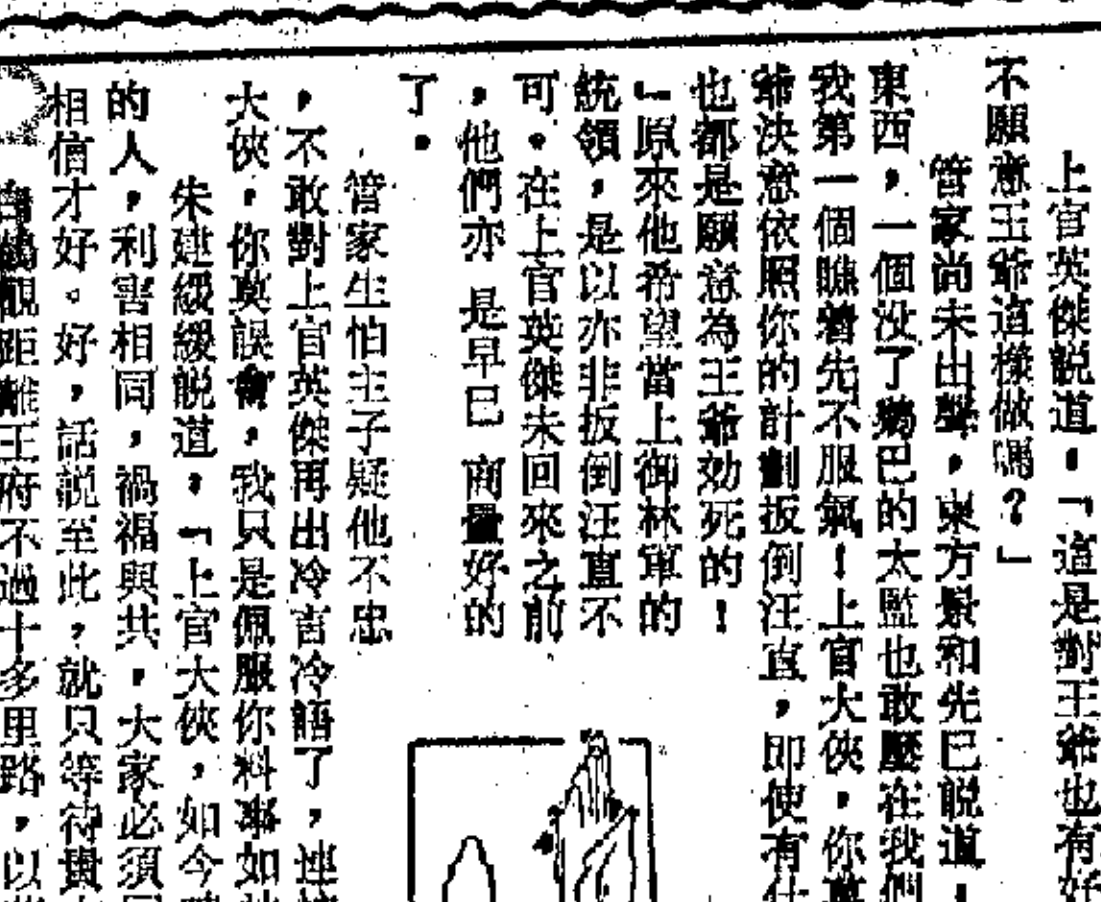 上官英傑説道，「這是對王爺也有好
不願意王爺這樣做嗎？」
管家尚未出聲，東方景和先已説道！
東西，一個没了鷄巴的太監也敢壓在我們
我第一個瞧着先不服氣！上官大俠，你
爺決意依照你的計劃扳倒汪直，即使有什
也都是願意為王爺効死的！
」原來他希望當上御林軍的
統領，是以亦非扳倒汪直不
可。在上官英傑未回來之前
，他們亦是早已商量好的
了。
管家生怕主子疑他不忠
，不敢對上官英傑再出冷言冷語了，連
大俠，你莫誤會，我只是佩服你料事如
朱建緩緩説道，「上官大俠，如今
的人，利害相同，禍福與共，大家必須
相信才好。好，話説至此，就只等待貴
白鶴觀距離王府不過十多里路，以